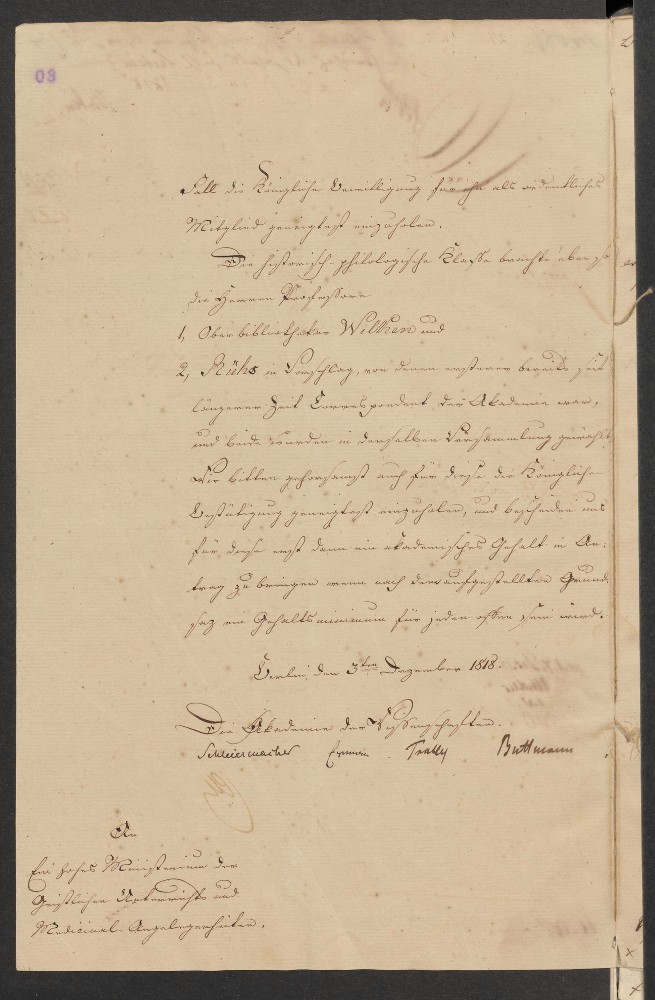 03
Fall die Königliche Bewilligung für ihn als ordentliches
Mitglied geneigtest einzuholen.
Die historisch-philologische Klasse brachte aber
die Herren Professoren
1, Oberbibliothekar Wilken und
2, Rühs in Vorschlag, von denen ersterer bereits seit
längerer Zeit Correspondent der Akademie war,
und beide wurden in derselben Versammlung gewählt.
Wir bitten gehorsamst auch für diese die Königliche
Bestätigung geneigtest einzuholen, und bescheiden uns
für diese erst dann ein akademisches Gehalt in An-
trag zu bringen wenn nach dem aufgestellten Grund-
saz ein Gehaltsminimum für jeden offen sein wird.
Berlin, den 3ten Dezember 1818.
Die Akademie der Wissenschaften.
Schleiermacher Erman Tralles Buttmann
An
Ein hohes Ministerium der
Geistlichen Unterrichts und
Medicinal-Angelegenheiten.